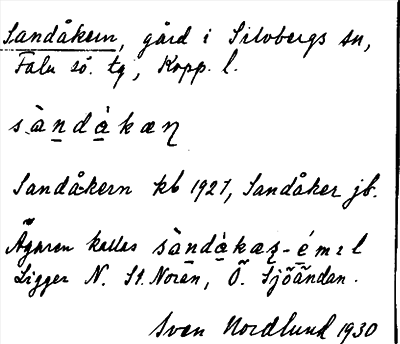 Sandåkern, gård i Silvbergs sn,
Falu sö. tg, Kopp. l.
sàndàkæɳ
Sandåkern kb 1927, Sandåker jb.
Ägaren kallas sàndàkæɳ-émɪl
Ligger N. St. Noren, Ö. Sjöändan.
Sven Nordlund 1930